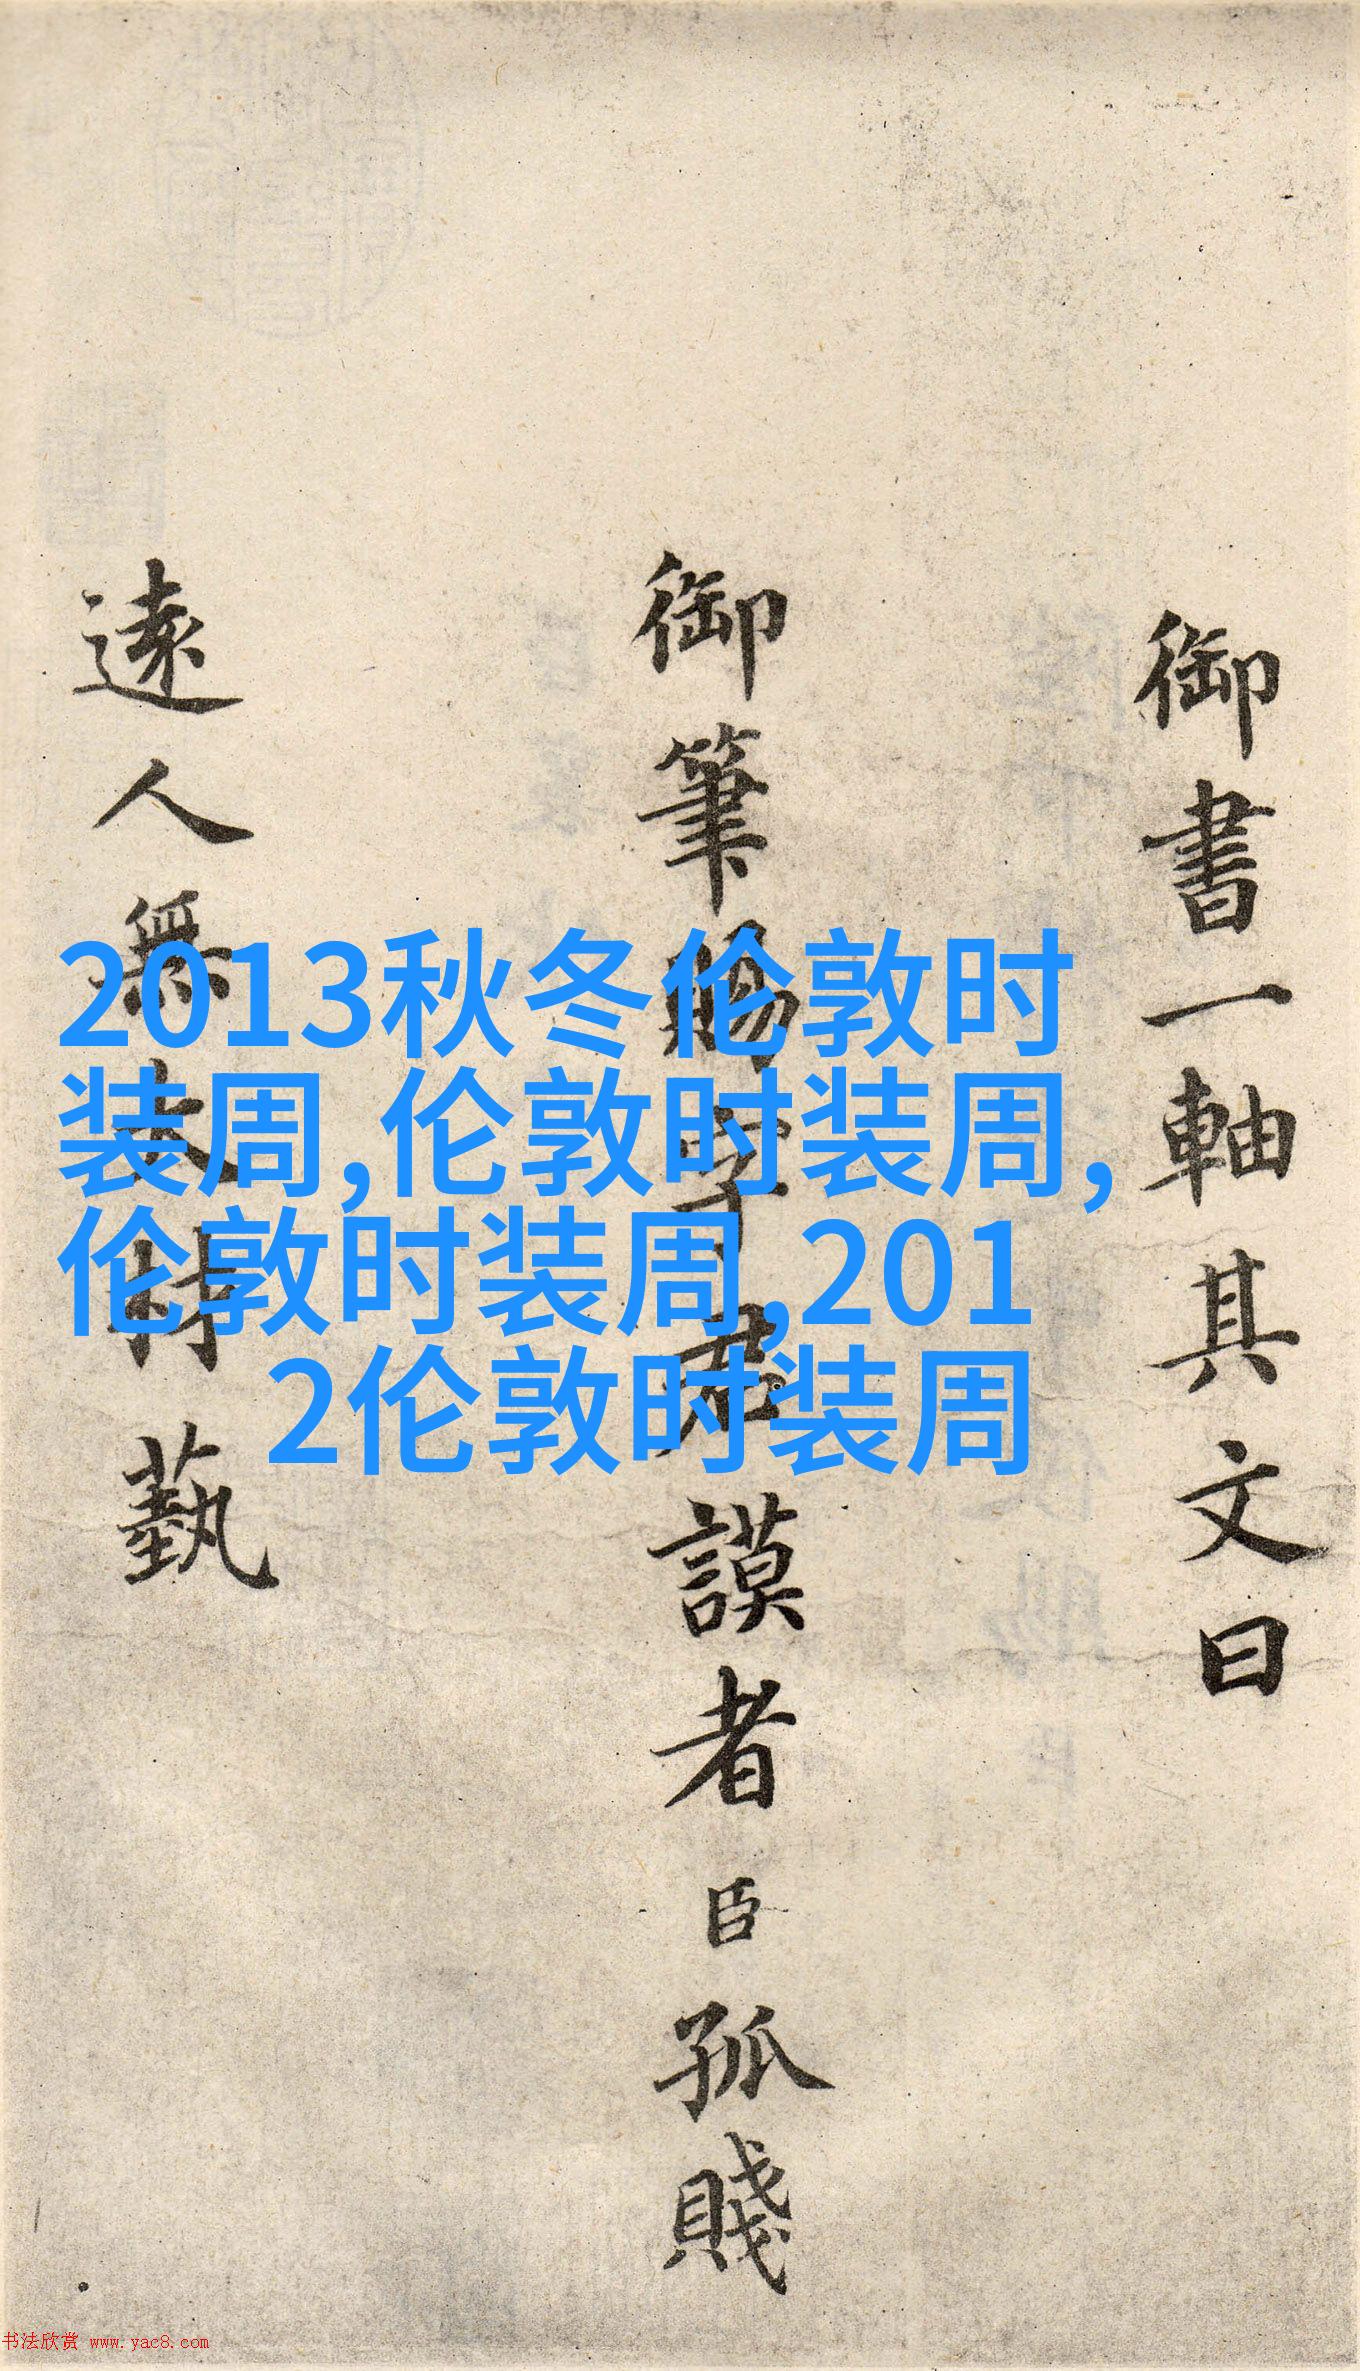 御書一軸其文曰
御筆賜字君謨者臣孤賤
遠人無大材藝
2013秋冬伦敦时
装周,伦敦时装周,
伦敦时装周,201
2伦敦时装周
书法欣赏 www.yac8.com